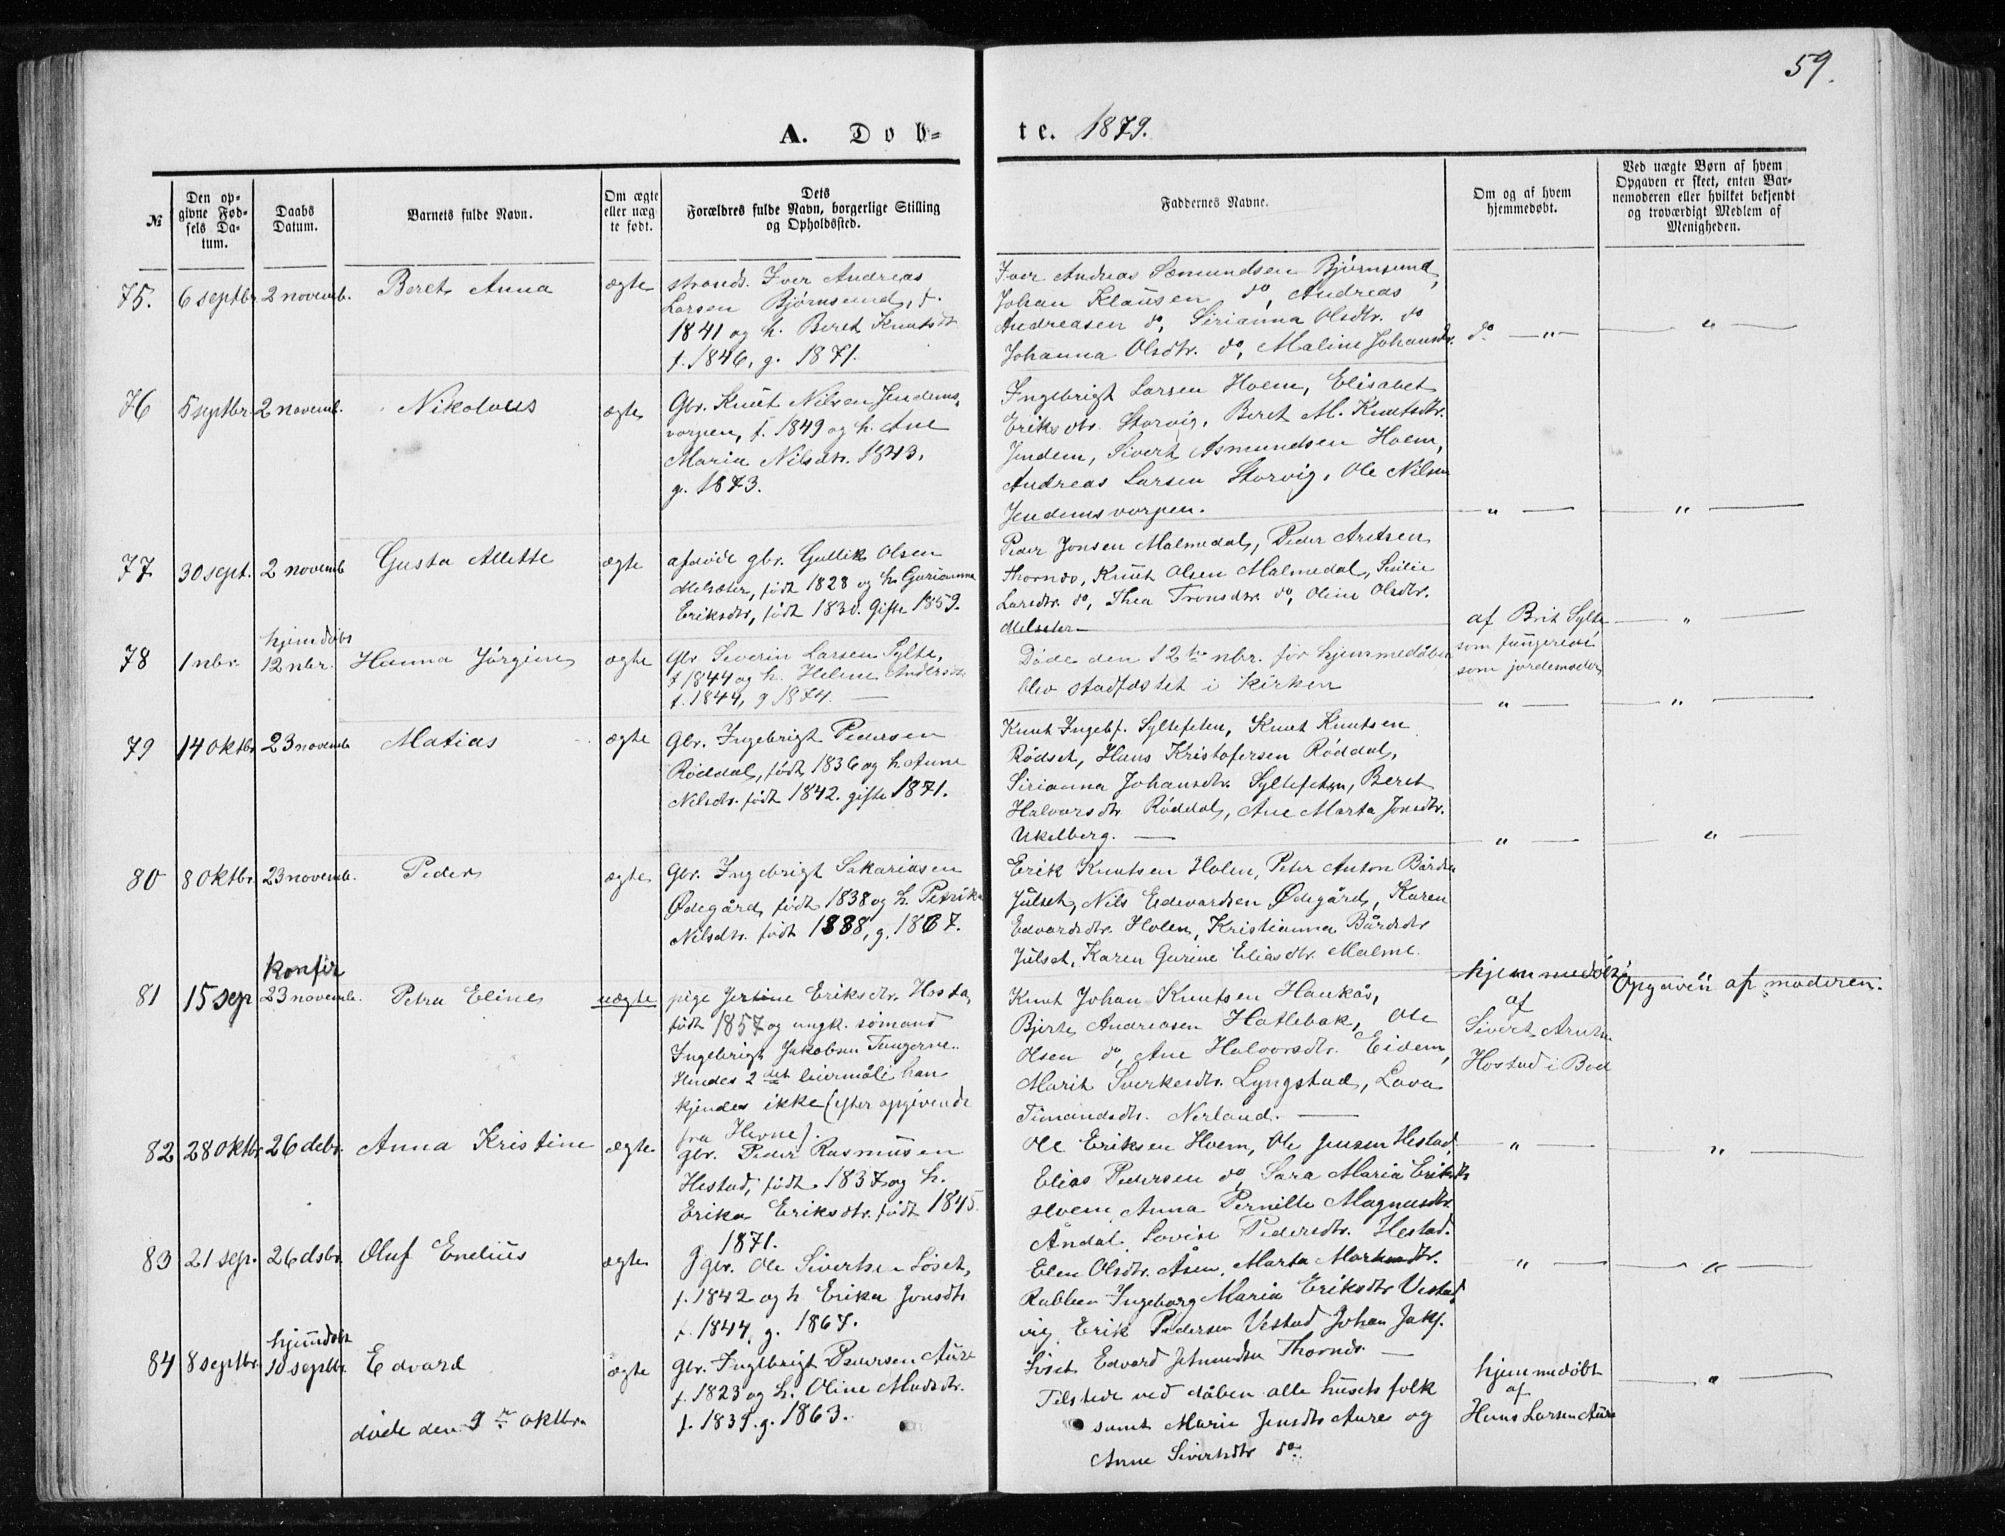 59.
A. Dob- te. 1879.
№
Den opgivne Fødsels Datum.
Daabs Datum.
Barnets fulde Navn.
Om ægte eller uægte født.
Dets Forældres fulde Navn, borgerlige Stilling og Opholdssted.
Faddernes Navne.
Om og af hvem hjemmedøbt.
Ved uægte Børn af hvem Opgaven er skeet, enten Barnemoderen eller hvilket bekjendt og troværdigt Medlem af Menigheden.
75. 6 septbr 2 novemb. Beret Anna ægte
strands. Iver Andreas
Larsen Bjørnsund, f.
1841 og h. Beret Knutsdt
f. 1846, g. 1871.
Iver Andreas Sæmundsen Bjørnsund,
Johan Klausen do, Andreas
Andreasen do, Sirianna Olsdtr. do
Johanna Olsdtr. do, Maline Johansdtr.
do — " — — " —
76 5 septbr 2 novemb. Nikolaus ægte
Gbr. Knut Nilsen Jendems-
vorpen, f. 1849 og h. Ane
Maria Nilsdtr. 1843,
g. 1873.
Ingebrigt Larsen Hoem, Elisabet
Eriksdtr. Storvig, Beret M. Knutsdtr.
Jendem, Sivert Asmundsen Hoem,
Andreas Larsen Storvig, Ole Nilsen
Jendemsvorpen.
" — — " —
77 30 sept. 2 novemb Gusta Allette ægte
afdøde gbr. Gullik Olsen
Melsæter, født 1828 og h. Gurianna
Eriksdtr, født 1830. Gifte 1859.
Peder Jonsen Malmedal, Peder Aretsen
Thornæs, Knut Olsen Malmedal,
Larsdtr. do, Thea Tronsdtr. do, Oline Olsdtr.
Melseter
— " —
78 1 nbr. hjemdøbt 12 nbr. Hanna Jørgine ægte
Gbr Severin Larsen Sylte,
f 1844 og h. Helene Andersdtr
f. 1844, g 1874. —
Døde den 12te nbr. før hjemmedåben
blev stadfæstet i kirken
af Brit Sylte
som fungerede
som jordemoder
" — — " —
79 14 oktbr 23 novemb Matias ægte
Gbr. Ingebrigt Pedersen
Røddal, født 1836 og h. Anne
Nilsdtr. født 1842. gifte 1871.
Knut Ingebr. Syltefeten, Knut Knutsen
Rødset, Hans Kristofersen Røddal,
Sirianna Johansdtr. Syltefeten, Beret
Halvorsdtr Røddal, Ane Marta Jonsdtr.
Ukelberg. —
" — "
80 8 oktbr. 23 novemb. Peder ægte
Gbr. Ingebrigt Sakariasen
Ødegård, født 1838 og h. Petrika
Nilsdtr. født 1838, g. 1867.
Erik Knutsen Holen, Peter Anton Bårdsen
Julset, Nils Edvardsen Ødegård, Karen
Edvardsdtr. Holen, Kristianna Bårdsdtr
Julset, Karen Gurine Eliasdtr. Malme.
81 15 sep konfir 23 novemb. Petra Eline uægte
pige Jertine Eriksdtr. Hostad,
født 1857 og ungk. sømand
Ingebrigt Jakobsen Tungerne.
Hendes 2det leiermål, han
kjendes ikke (efter opgivende
fra Hevne).
Knut Johan Knutsen Haukås,
Bjerte Andreasen Hatlebak, Ole
Olsen do, Ane Halvorsdtr. Eidem,
Marit Sverkesdtr. Lyngstad, Lava
Timandsdtr. Nerland. —
hjemmedøbt
af
Sivert Arntsen
Hostad i Bod
Opgaven af moderen.
82 28 oktbr 26 debr. Anna Kristine ægte
gbr. Peder Rasmusen
Hestad, født 1837 og h.
Erika Eriksdtr. født 1845.
g 1871.
Ole Eriksen Hoem, Ole Jensen Hestad,
Elias Pedersen do, Sara Maria Eriksdtr
Hoem, Anna Pernille Magnusdtr.
Åndal, Lovise Pedersdtr. Hestad.
" — " —
83 21 sep. 26 dsbr. Oluf Enelius ægte
gbr. Ole Sivertsen Løset,
f. 1842 og h Erika Jonsdtr
f. 1844, g. 1867.
Elen Olsdtr. Åsen, Marta Martensdtr.
Rabben Ingeborg Maria Eriksdtr Vestad
vig Erik Pedersen Vestad Johan Jakf.
Løset Edvard Thornæs. —
" — — " —
84 8 septbr. hjemdøbt 10 septbr. Edvard ægte
døde den 9de oktbr.
Gbr. Ingebrigt Pedersen Aure
f. 1823 og h. Oline Madsdtr.
f. 1839. g. 1863.
Tilstede ved dåben alle husets folk
samt Marie Jensdtr Aure og
Anne Sivertsdtr do.
hjemmedøbt
af
Hans Larsen Aure
— " —